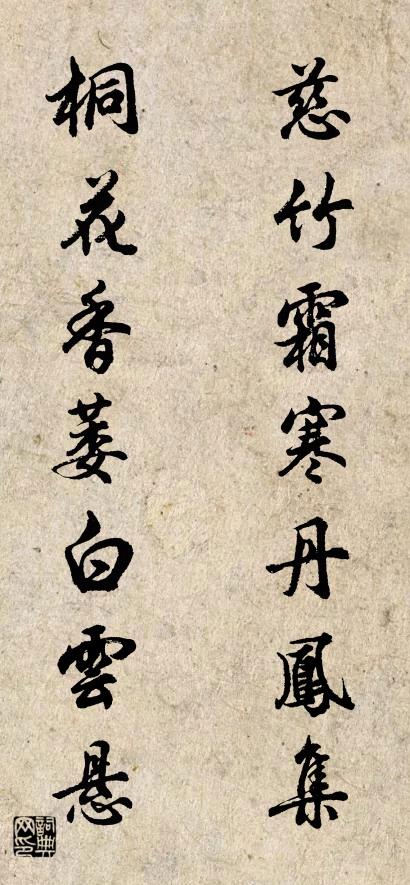 慈竹霜寒丹鳳集
桐花香萎白雲悬
詞典网印